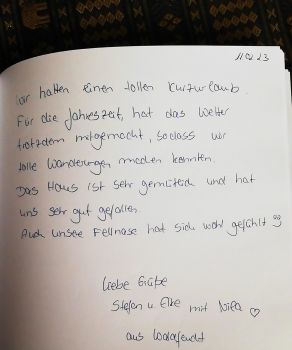 11.02.23
Wir hatten einen tollen Kurzurlaub.
Für die Jahreszeit, hat das Wetter
trotzdem mitgemacht, sodass wir
tolle Wanderungen machen konnten.
Das Haus ist sehr gemütlich und hat
uns sehr gut gefallen.
Auch unsere Fellnase hat sich wohl gefühlt
Liebe Grüße
Stefan u. Elke mit
aus